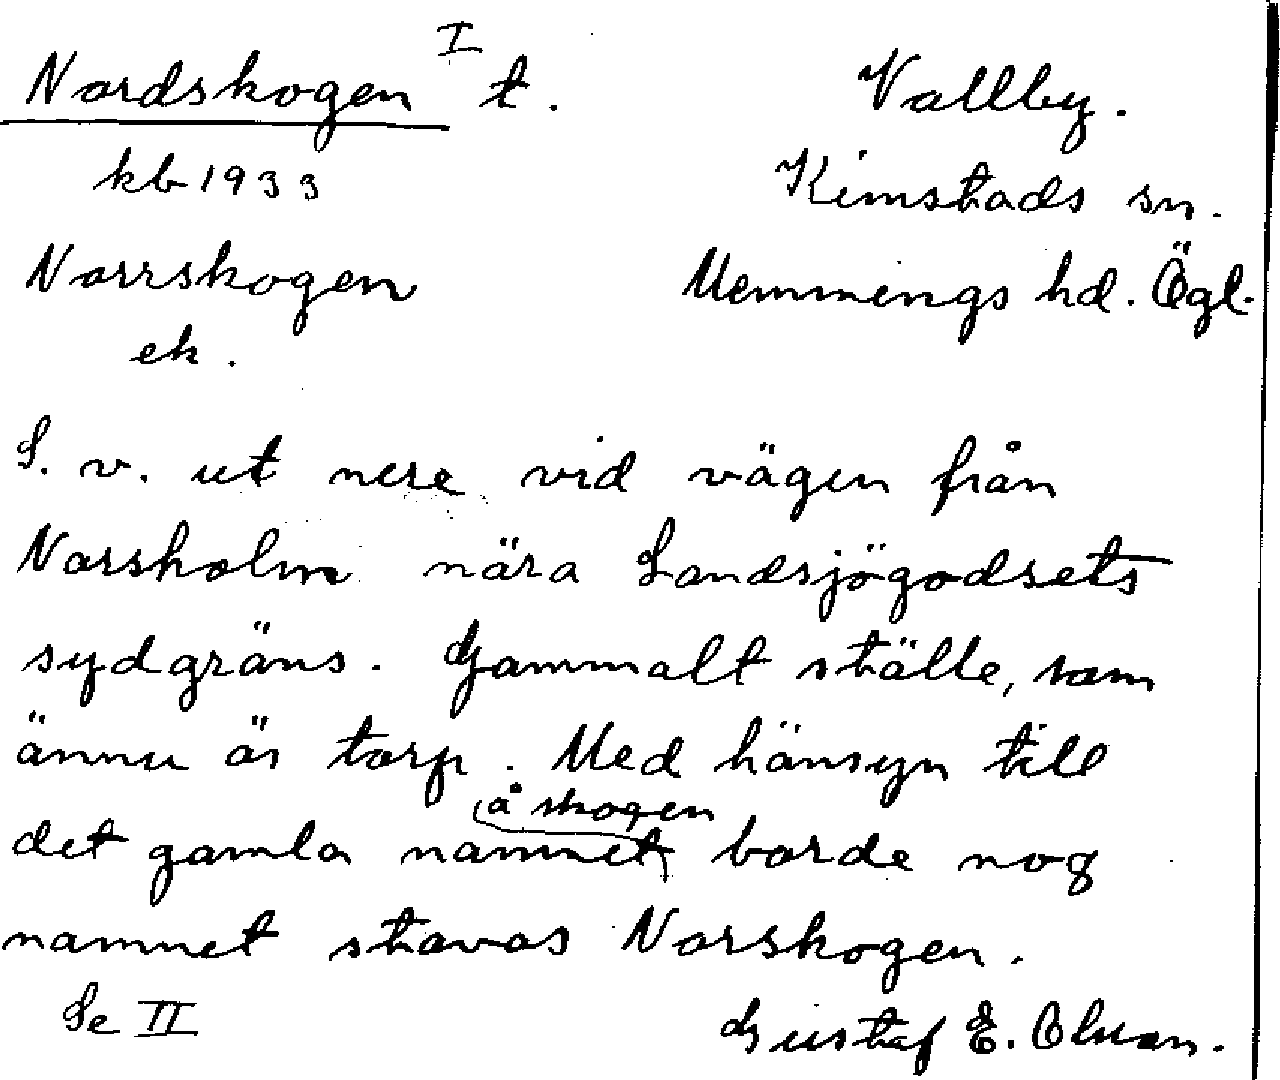 Nordskogen I t.
Vallby.
kb 1933
Kimstads sn.
Norrskogen
Memmings hd. Ögl.
ek.
S. v. ut nere vid vägen från
Norsholm nära Landsjögodsets
sydgräns. Gammalt ställe, som
ännu är torp. Med hänsyn till
å skogen
det gamla namnet borde nog
namnet stavas Norskogen.
Se II
Gustaf E. Olsson.